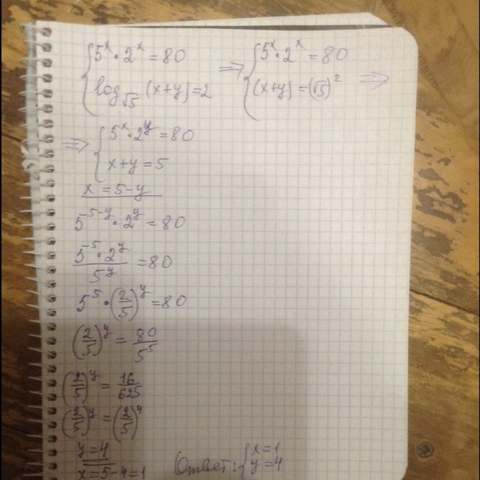 { 5^x · 2^x = 80 ⇒ { 5^x · 2^x = 80
log_√5 (x+y) = 2 (x+y) = (√5)^2 ⇒
⇒ { 5^x · 2^y = 80
x+y = 5
x = 5-y
5^5-y · 2^y = 80
5^5 · 2^y / 5^y = 80
5^5 · (2/5)^y = 80
(2/5)^y = 80/5^5
(2/5)^y = 16/625
(2/5)^y = (2/5)^4
y = 4
x = 5-4 = 1 Ответ: { x = 1
y = 4